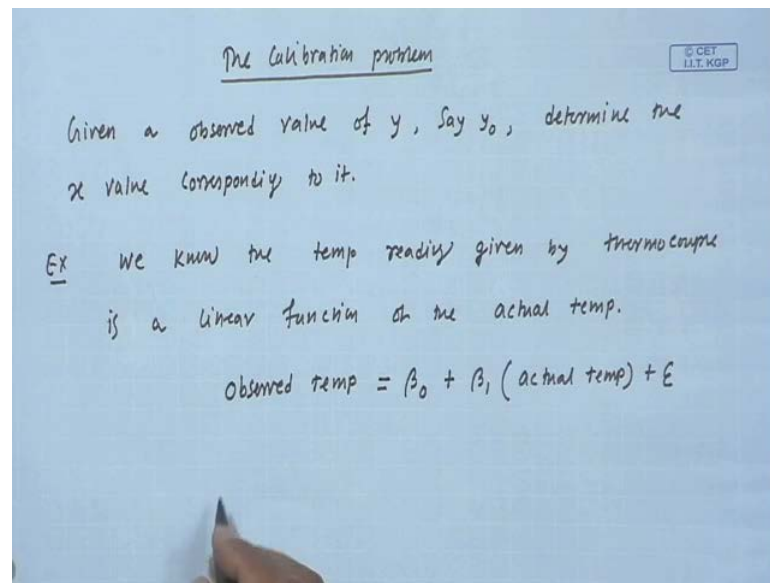 The Calibration problem
© CET
I.I.T. KGP
Given a observed value of y, say y₀, determine the
x value corresponding to it.
Ex We know the temp reading given by thermocouple
is a linear function of the actual temp.
Observed temp = β₀ + β₁ (actual temp) + ε